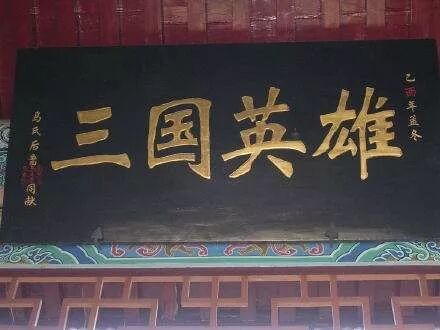 三国英雄
乙酉年孟冬
马氏后裔
同献